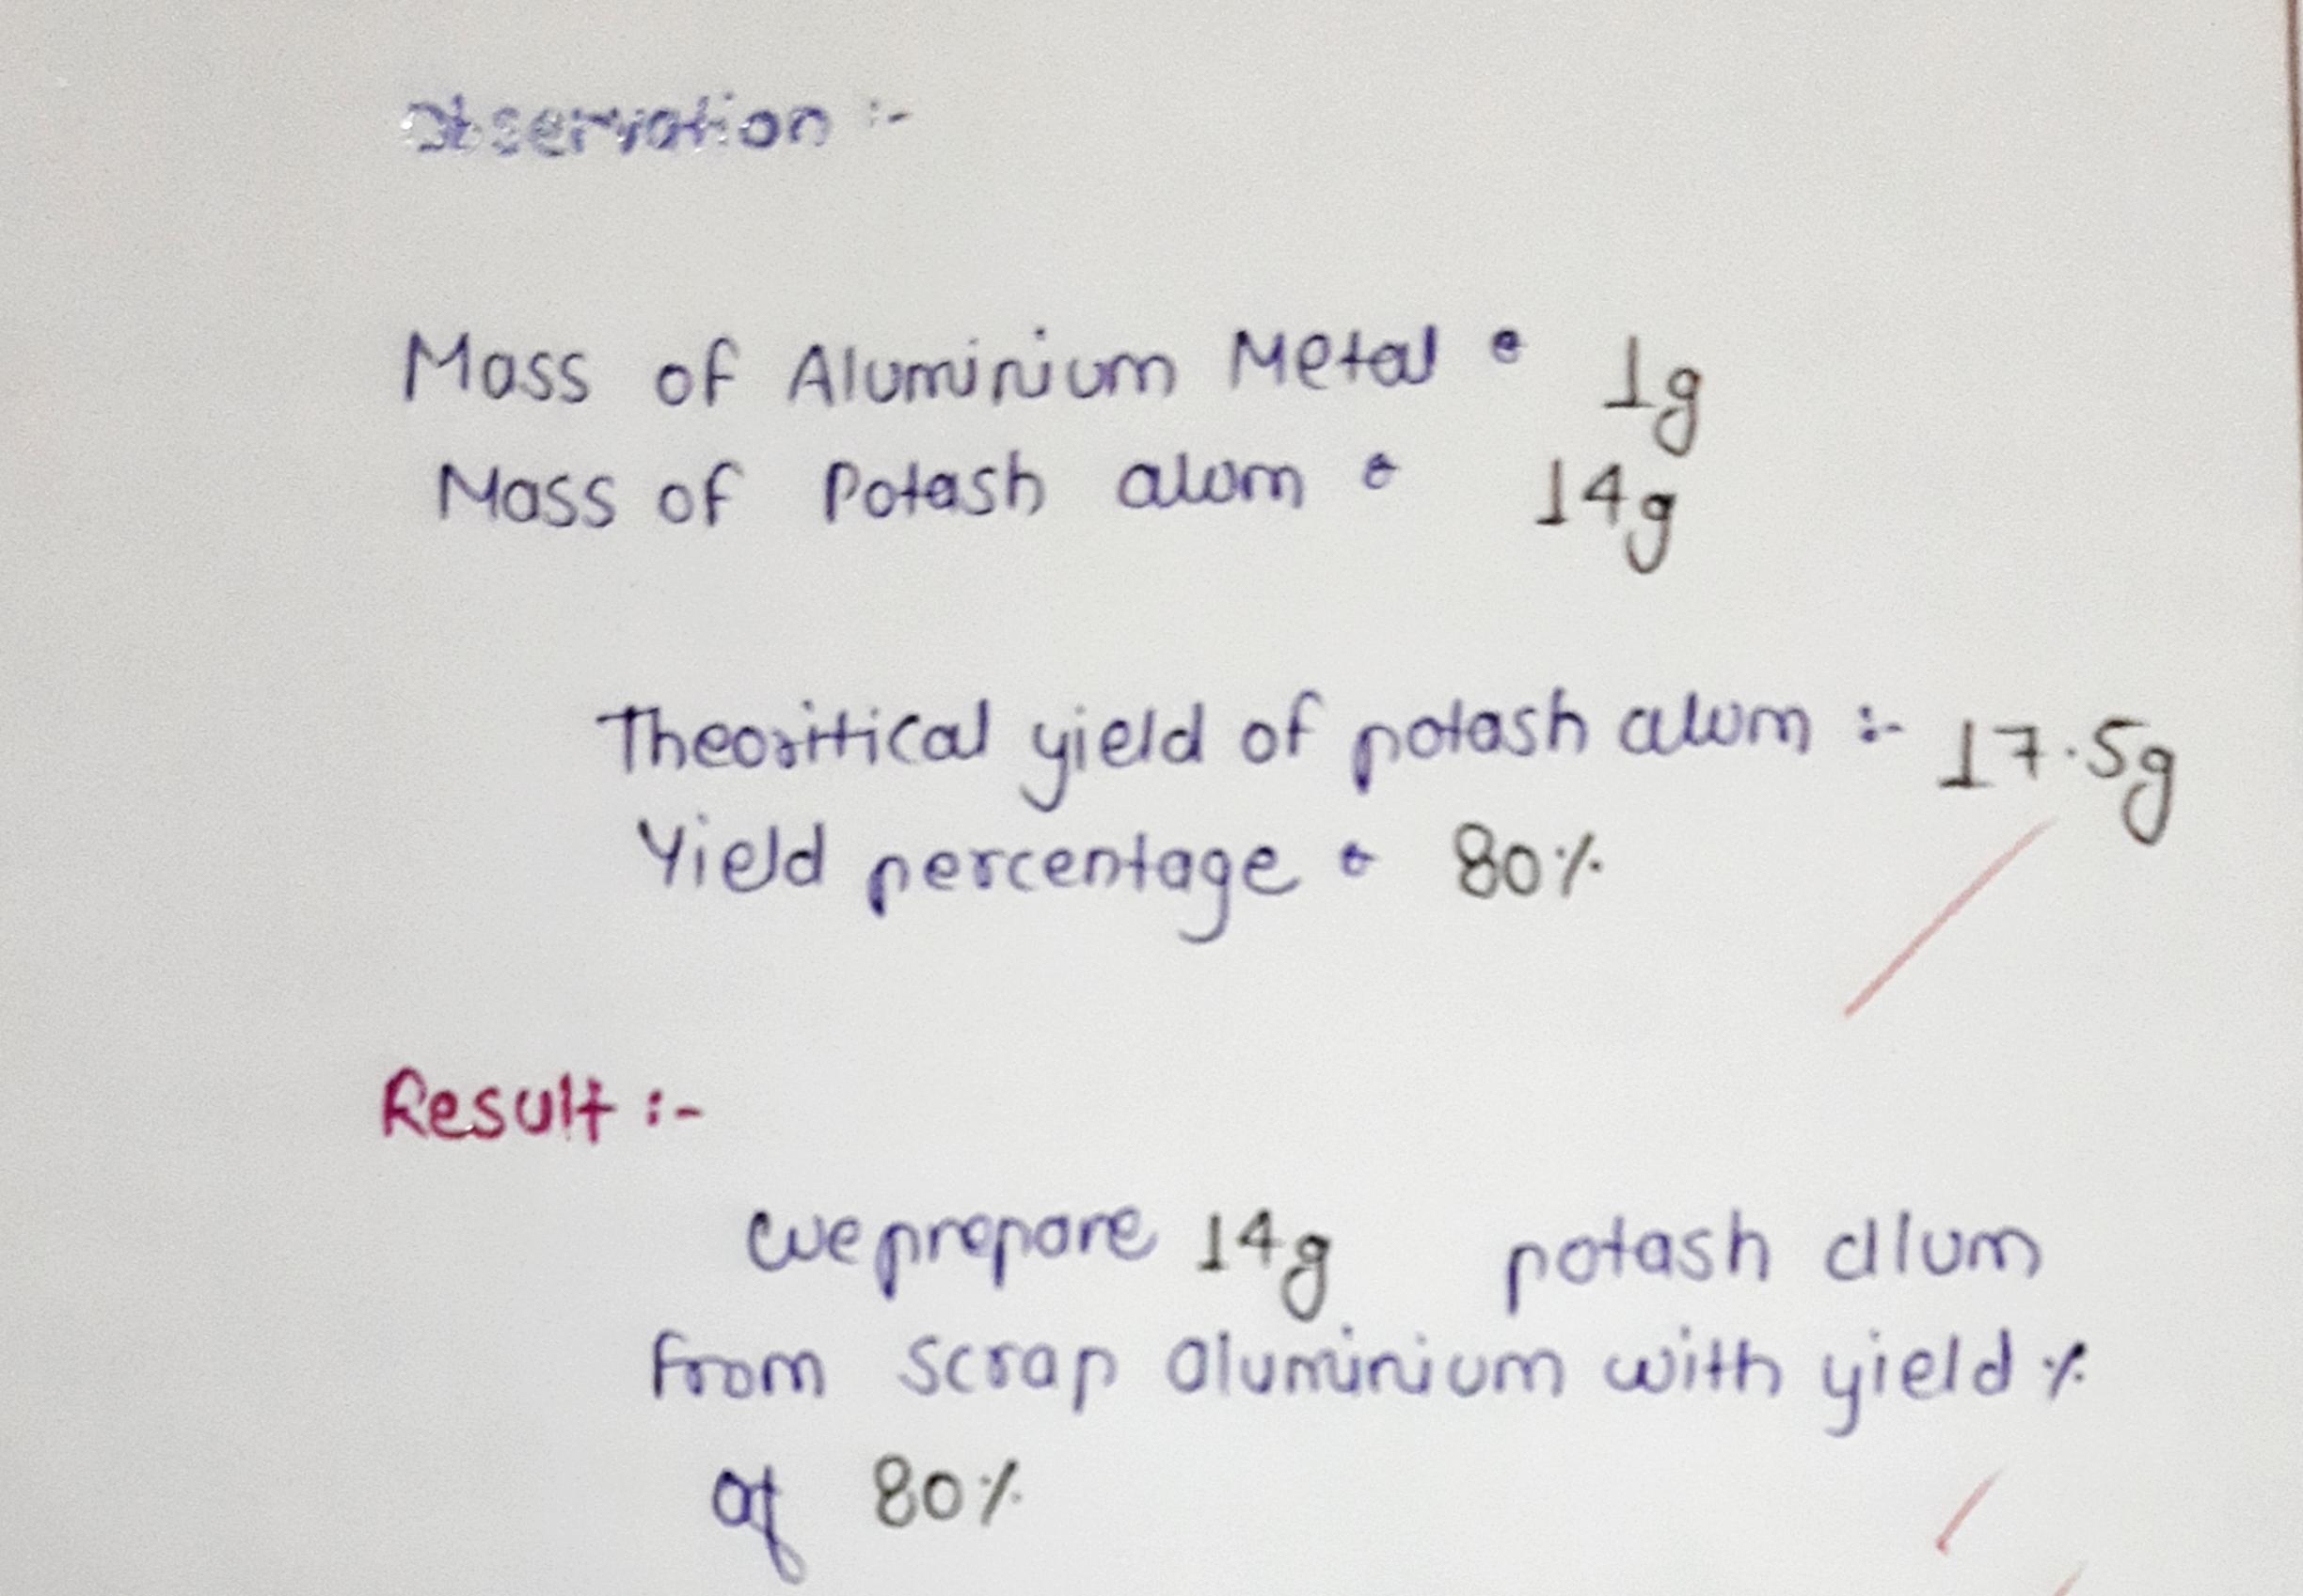 Observation :-
Mass of Aluminium Metal = 1g
Mass of Potash alum = 14g
Theoritical yield of potash alum :- 17.5g
Yield percentage = 80%
Result :-
We prepare 14g potash alum
from scrap aluminium with yield %
of 80%